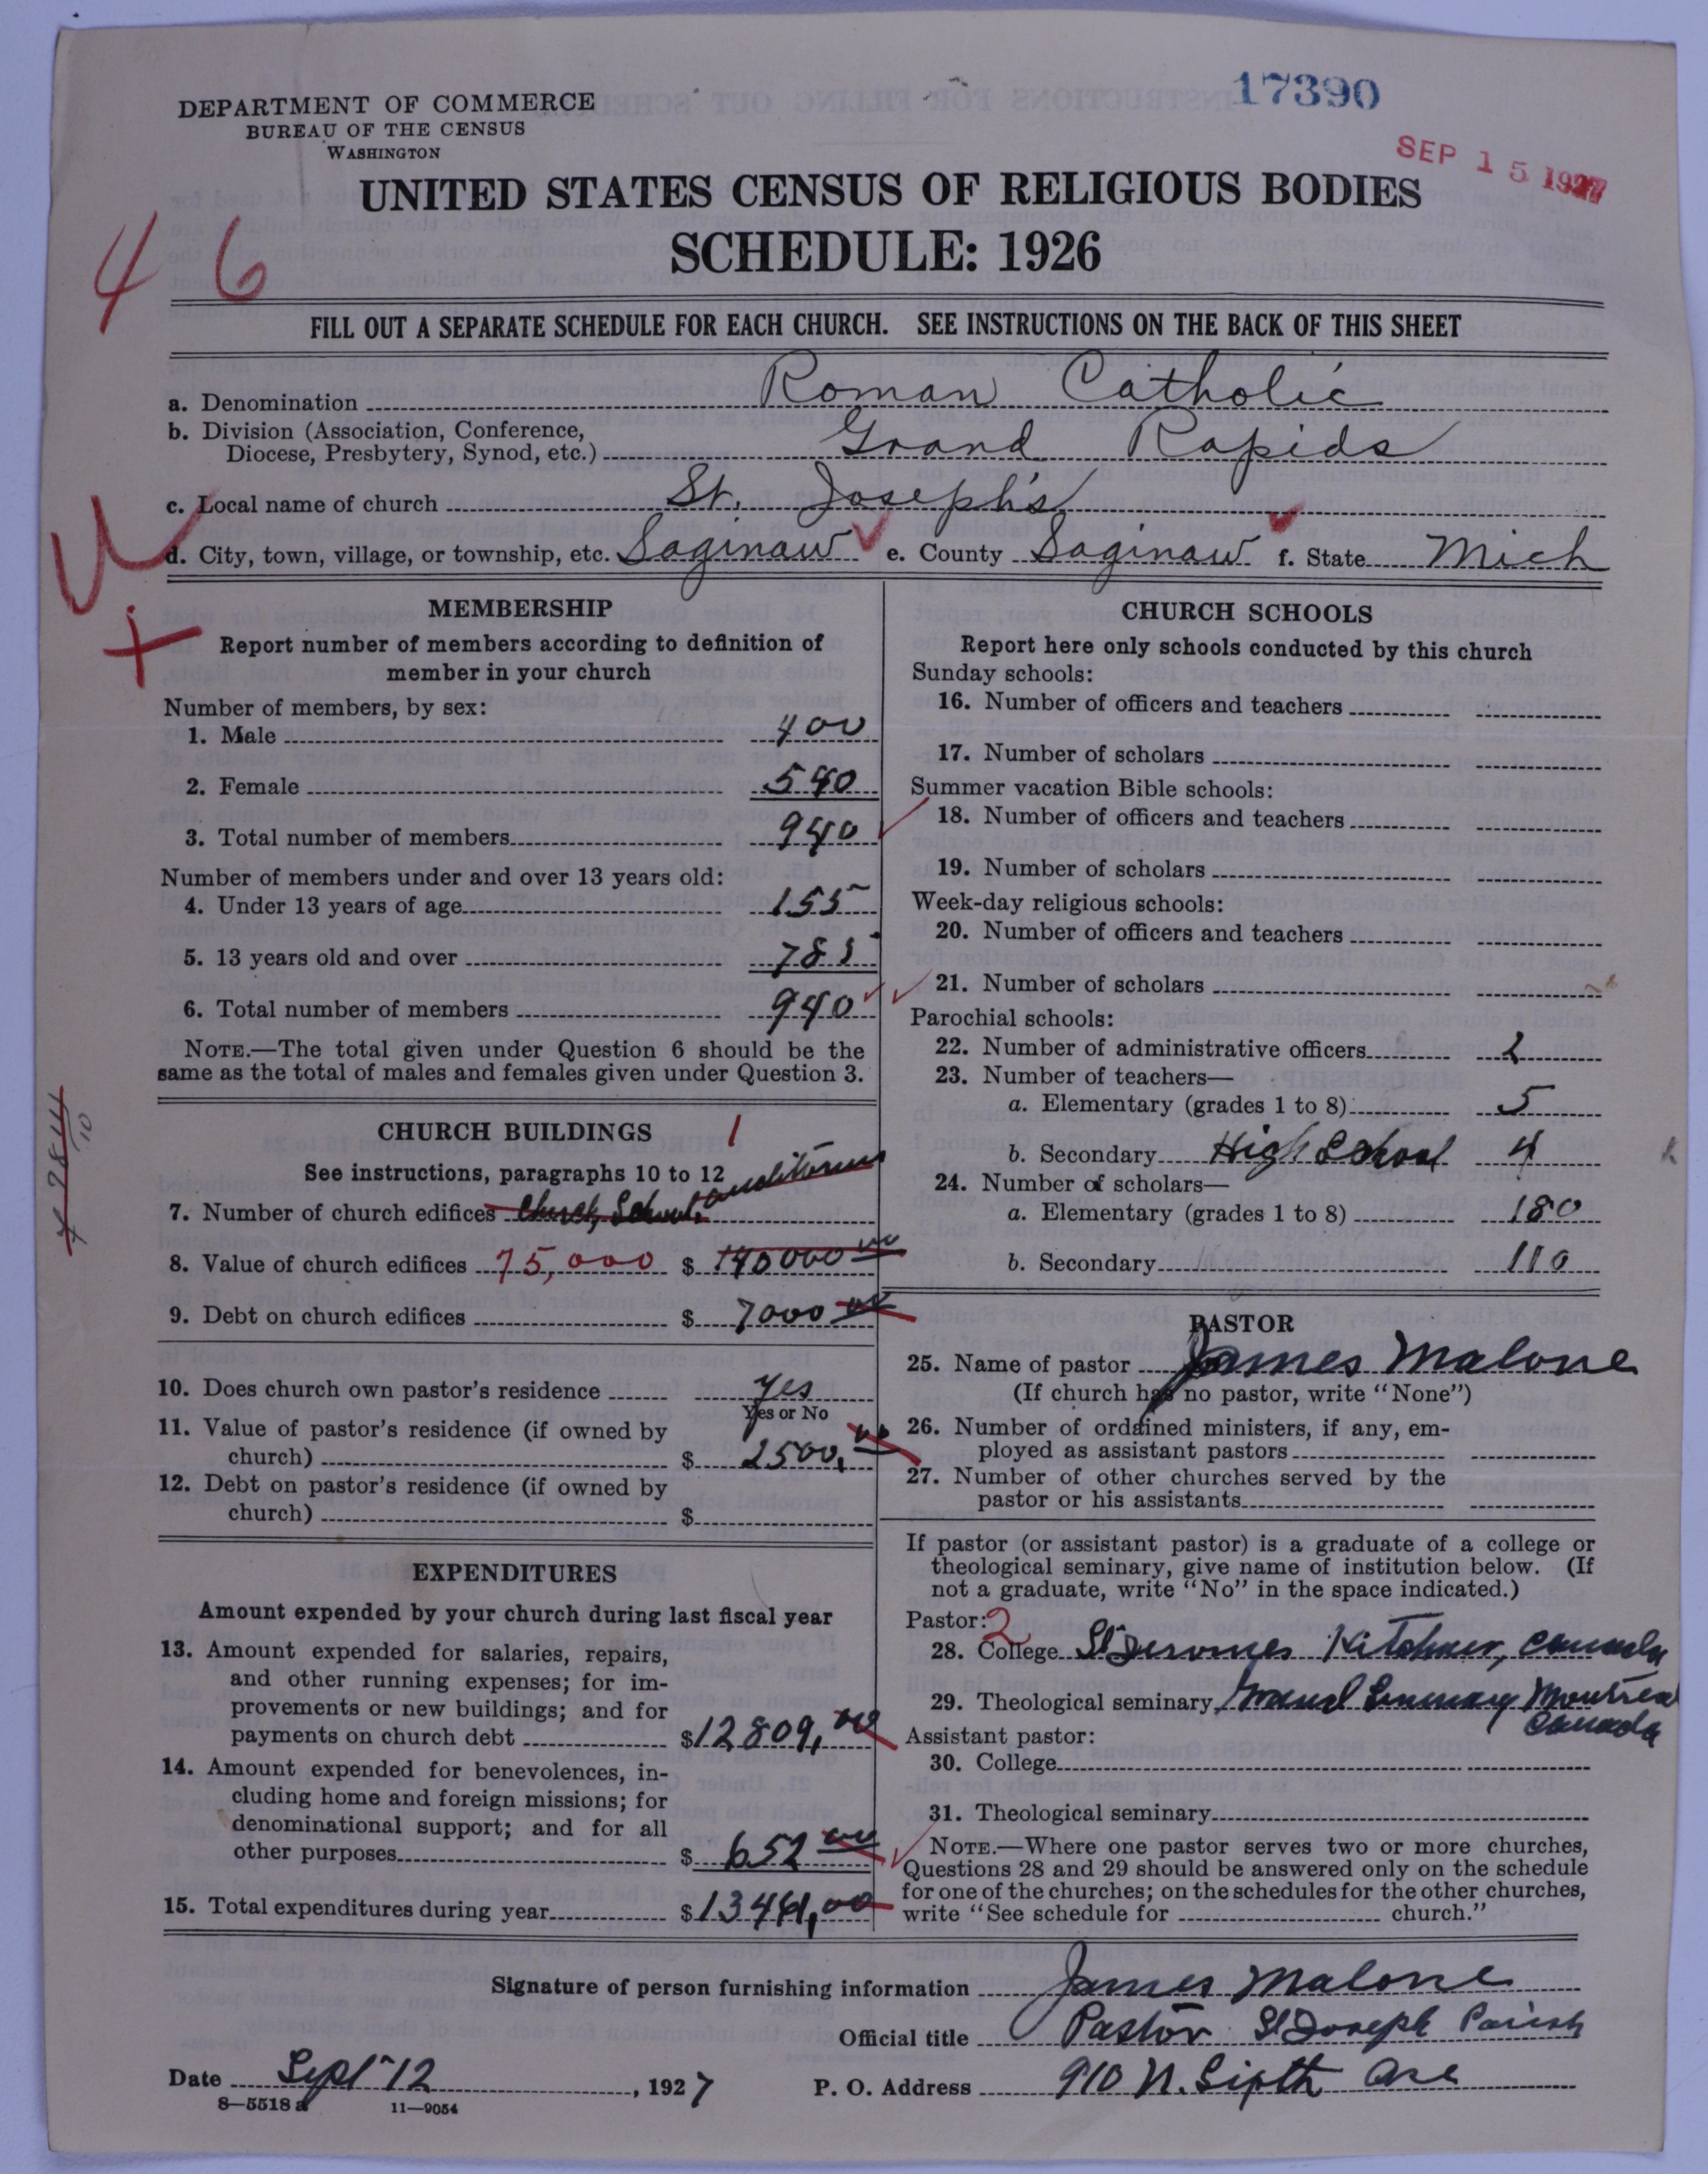 17390
SEP 15 1927
DEPARTMENT OF COMMERCE
BUREAU OF THE CENSUS
WASHINGTON
UNITED STATES CENSUS OF RELIGIOUS BODIES
SCHEDULE: 1926
4 6
FILL OUT A SEPARATE SCHEDULE FOR EACH CHURCH. SEE INSTRUCTIONS ON THE BACK OF THIS SHEET
a. Denomination Roman Catholic
b. Division (Association, Conference,
Diocese, Presbytery, Synod, etc.) Grand Rapids
c. Local name of church St. Joseph's
d. City, town, village, or township, etc. Saginaw e. County Saginaw f. State Mich
MEMBERSHIP
Report number of members according to definition of
member in your church
Number of members, by sex:
1. Male 400
2. Female 540
3. Total number of members 940
Number of members under and over 13 years old:
4. Under 13 years of age 155
5. 13 years old and over 785
6. Total number of members 940
NOTE.—The total given under Question 6 should be the
same as the total of males and females given under Question 3.
CHURCH BUILDINGS 1
See instructions, paragraphs 10 to 12
7. Number of church edifices Church, School, auditorium
8. Value of church edifices 75,000 $ 140000 00
9. Debt on church edifices $ 7000 00
10. Does church own pastor's residence yes
Yes or No
11. Value of pastor's residence (if owned by
church) $ 2500, 00
12. Debt on pastor's residence (if owned by
church) $
EXPENDITURES
Amount expended by your church during last fiscal year
13. Amount expended for salaries, repairs,
and other running expenses; for im-
provements or new buildings; and for
payments on church debt $12809, 00
14. Amount expended for benevolences, in-
cluding home and foreign missions; for
denominational support; and for all
other purposes $ 652 00
15. Total expenditures during year $13461,00
CHURCH SCHOOLS
Report here only schools conducted by this church
Sunday schools:
16. Number of officers and teachers
17. Number of scholars
Summer vacation Bible schools:
18. Number of officers and teachers
19. Number of scholars
Week-day religious schools:
20. Number of officers and teachers
21. Number of scholars
Parochial schools:
22. Number of administrative officers 2
23. Number of teachers—
a. Elementary (grades 1 to 8) 5
b. Secondary High School 4
24. Number of scholars—
a. Elementary (grades 1 to 8) 180
b. Secondary 110
PASTOR
25. Name of pastor James Malone
(If church has no pastor, write "None")
26. Number of ordained ministers, if any, em-
ployed as assistant pastors
27. Number of other churches served by the
pastor or his assistants
If pastor (or assistant pastor) is a graduate of a college or
theological seminary, give name of institution below. (If
not a graduate, write "No" in the space indicated.)
Pastor: 2
28. College St Jeromes Kitchner, Canada
29. Theological seminary Grand Seminary Montreal
Canada
Assistant pastor:
30. College
31. Theological seminary
NOTE.—Where one pastor serves two or more churches,
Questions 28 and 29 should be answered only on the schedule
for one of the churches; on the schedules for the other churches,
write "See schedule for church."
Signature of person furnishing information James Malone
Official title Pastor St Joseph Parish
Date Sept 12, 1927 P. O. Address 910 N. Sixth Ave
8—5518 a 11—9054